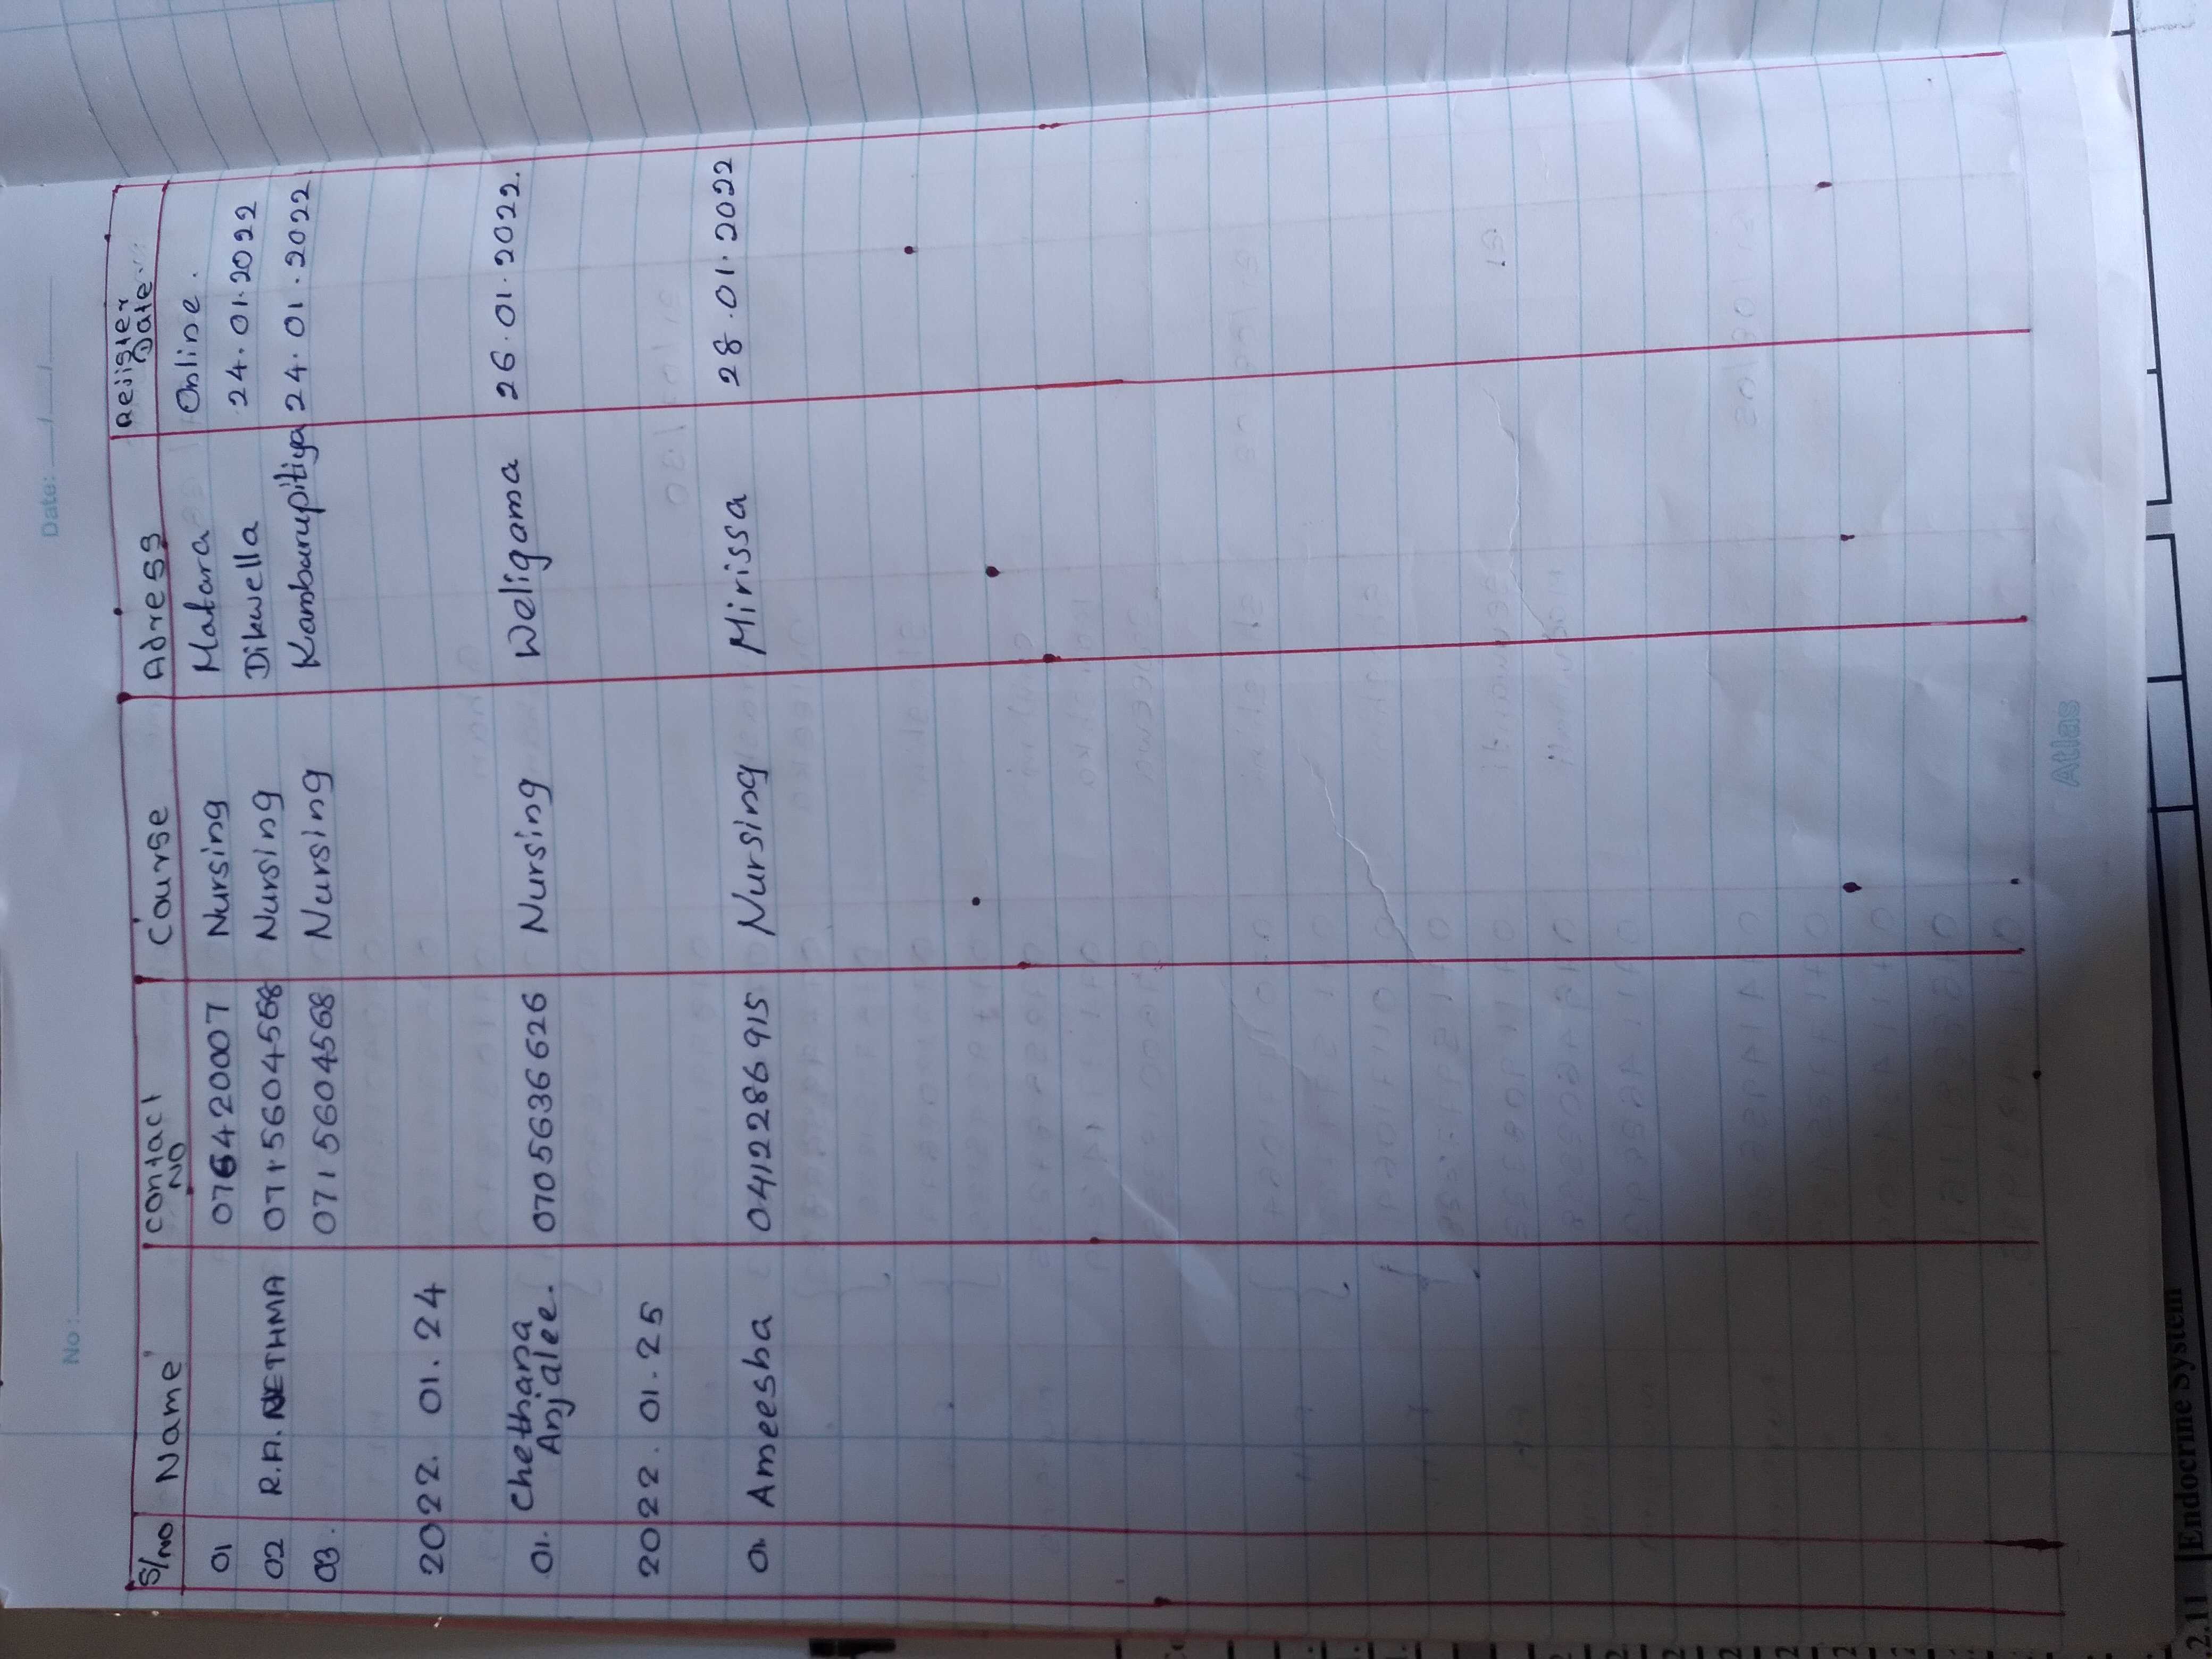 No: Date: / /
S/no Name Contact No Course Adress Register Date
01 0764220007 Nursing Matara Online.
02 R.A. NETHMA 0715604568 Nursing Dikwella 24.01.2022
03. 0715604568 Nursing Kamburupitiya 24.01.2022
2022. 01. 24
01. Chethana Anjalee. 0705636626 Nursing Weligama 26.01.2022.
2022. 01. 25
01. Ameesha 0412286915 Nursing Mirissa 28.01.2022
Atlas
2.11 Endocrine System